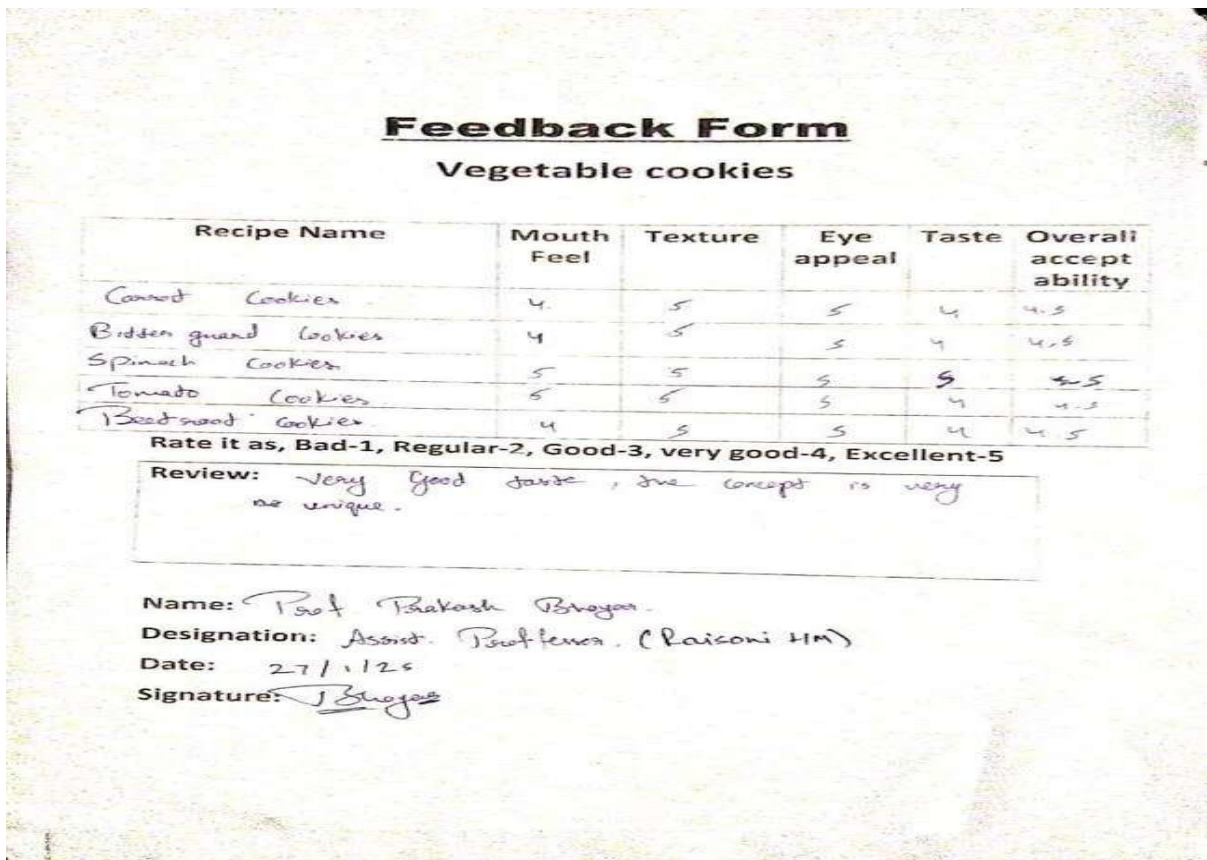 Feedback Form
Vegetable cookies
Recipe Name Mouth Feel Texture Eye appeal Taste Overall accept ability
Carrot Cookies 4 5 5 4 4.5
Bidden guard Cookies 4 5 5 4 4.5
Spinach Cookies 5 5 5 5 5
Tomato Cookies 5 5 5 4 4.5
Beetroot Cookies 4 5 5 4 4.5
Rate it as, Bad-1, Regular-2, Good-3, very good-4, Excellent-5
Review: Very Good taste, the concept is very
unique.
Name: Prof Prakash Bhoyar.
Designation: Assist. Proffessor. (Raisoni HM)
Date: 27/1/25
Signature: Bhoyar